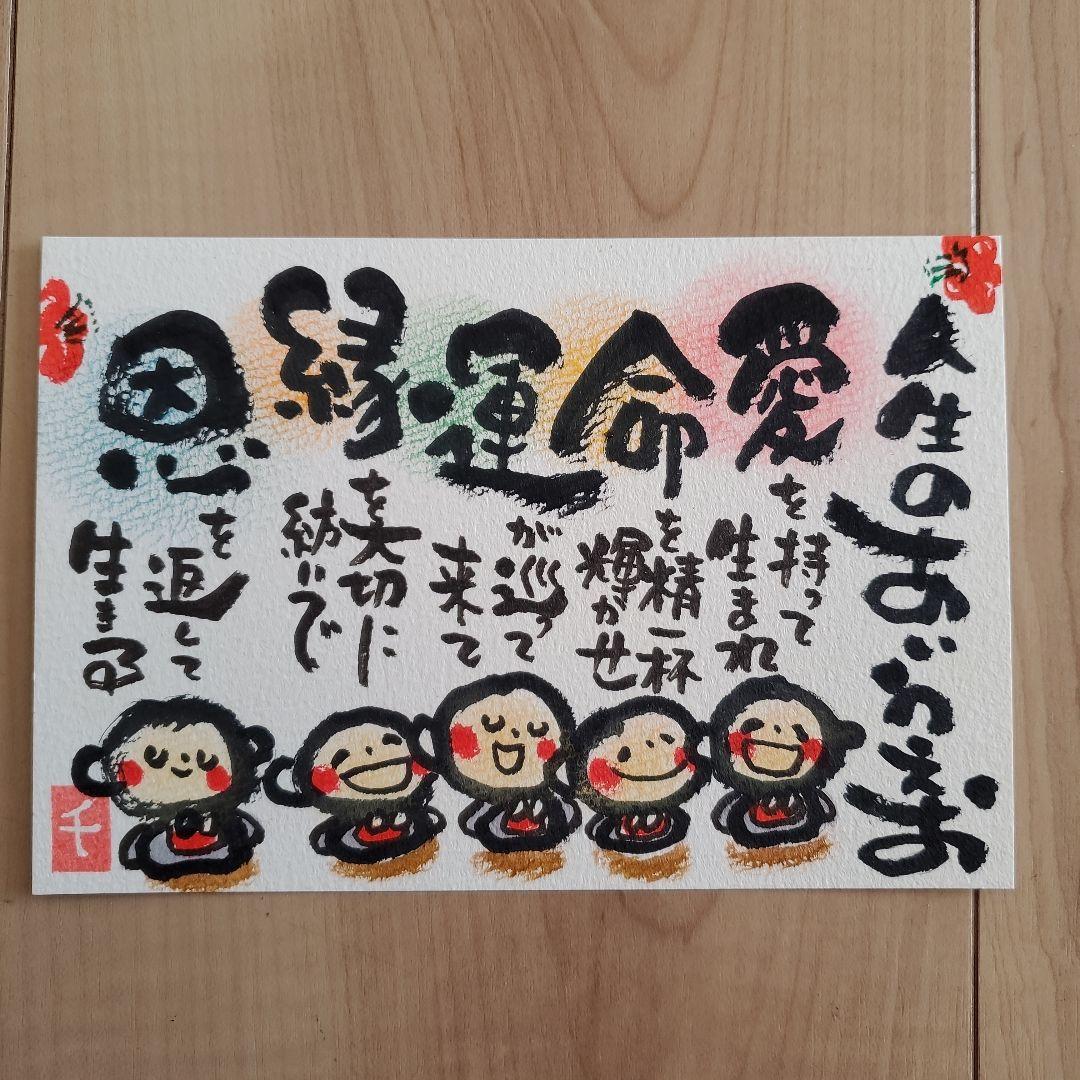 人生のあいうえお
愛
を持って
生まれ
命
を精一杯
輝かせ
運
が巡って
来て
縁
を大切に
紡いで
恩
を返して
生きる
千